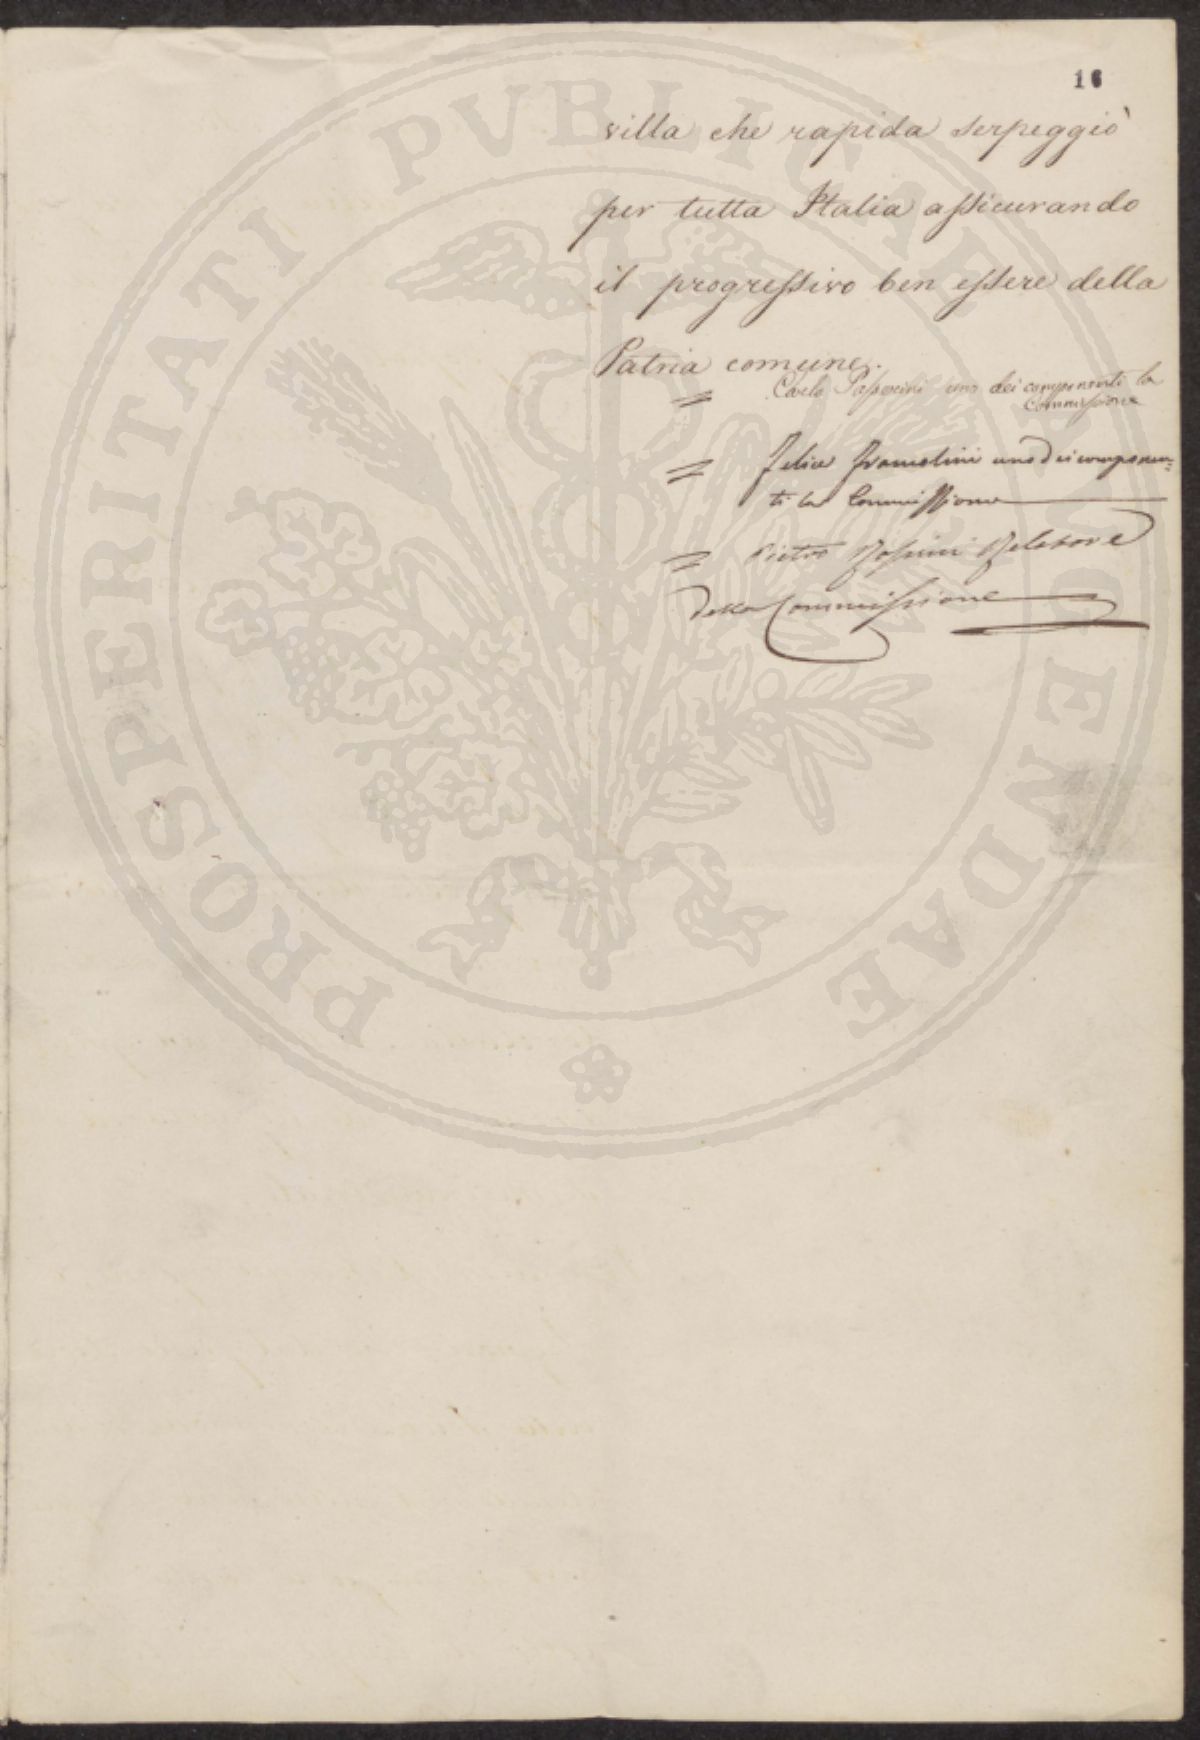 16
villa che rapida serpeggiò
per tutta Italia assicurando
il progressivo ben essere della
Patria comune.
= Carlo Passerini uno dei componenti la
Commissione
= Felice Framolini uno dei componen=
ti la Commissione
= Pietro Relatore
della Commissione
PROSPERITATI PVBLICAE AVGENDAE